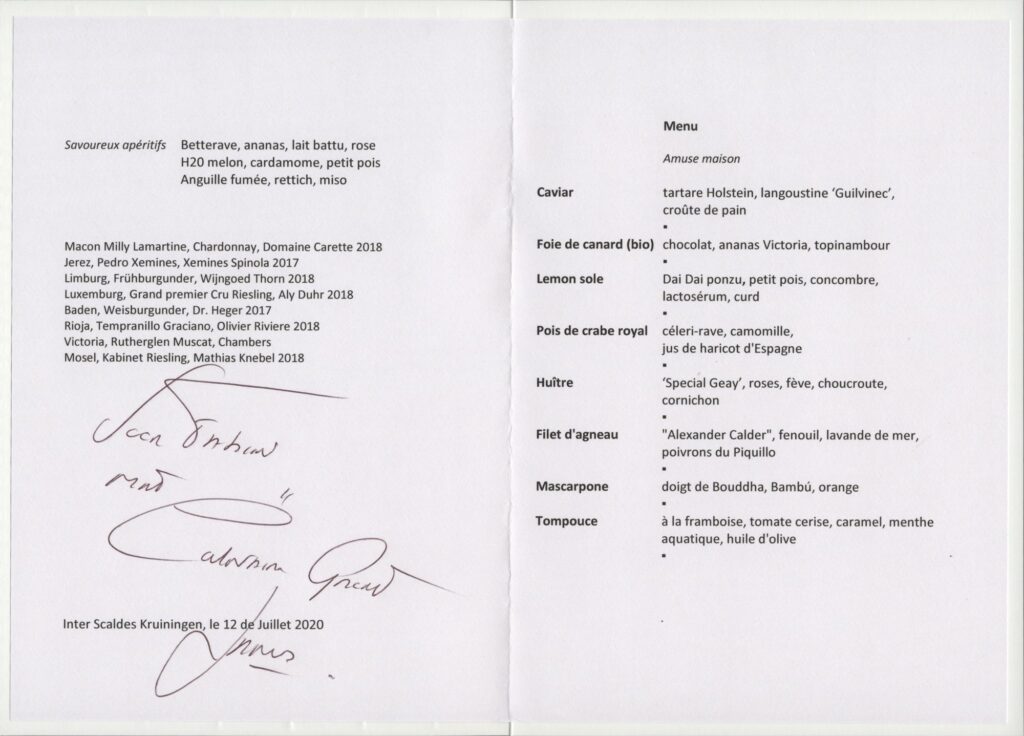 Savoureux apéritifs Betterave, ananas, lait battu, rose
H20 melon, cardamome, petit pois
Anguille fumée, rettich, miso
Macon Milly Lamartine, Chardonnay, Domaine Carette 2018
Jerez, Pedro Xemines, Xemines Spinola 2017
Limburg, Frühburgunder, Wijngoed Thorn 2018
Luxemburg, Grand premier Cru Riesling, Aly Duhr 2018
Baden, Weisburgunder, Dr. Heger 2017
Rioja, Tempranillo Graciano, Olivier Riviere 2018
Victoria, Rutherglen Muscat, Chambers
Mosel, Kabinet Riesling, Mathias Knebel 2018
Inter Scaldes Kruiningen, le 12 de Juillet 2020
Menu
Amuse maison
Caviar tartare Holstein, langoustine ‘Guilvinec’,
croûte de pain
Foie de canard (bio) chocolat, ananas Victoria, topinambour
Lemon sole Dai Dai ponzu, petit pois, concombre,
lactosérum, curd
Pois de crabe royal céleri-rave, camomille,
jus de haricot d'Espagne
Huître ‘Special Geay’, roses, fève, choucroute,
cornichon
Filet d'agneau "Alexander Calder", fenouil, lavande de mer,
poivrons du Piquillo
Mascarpone doigt de Bouddha, Bambú, orange
Tompouce à la framboise, tomate cerise, caramel, menthe
aquatique, huile d'olive